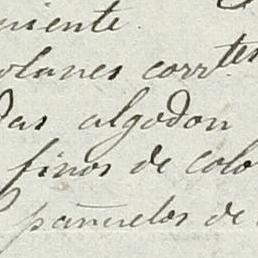 niente.
olanes corrtes
das algodon
finos de colo
pañuelos de